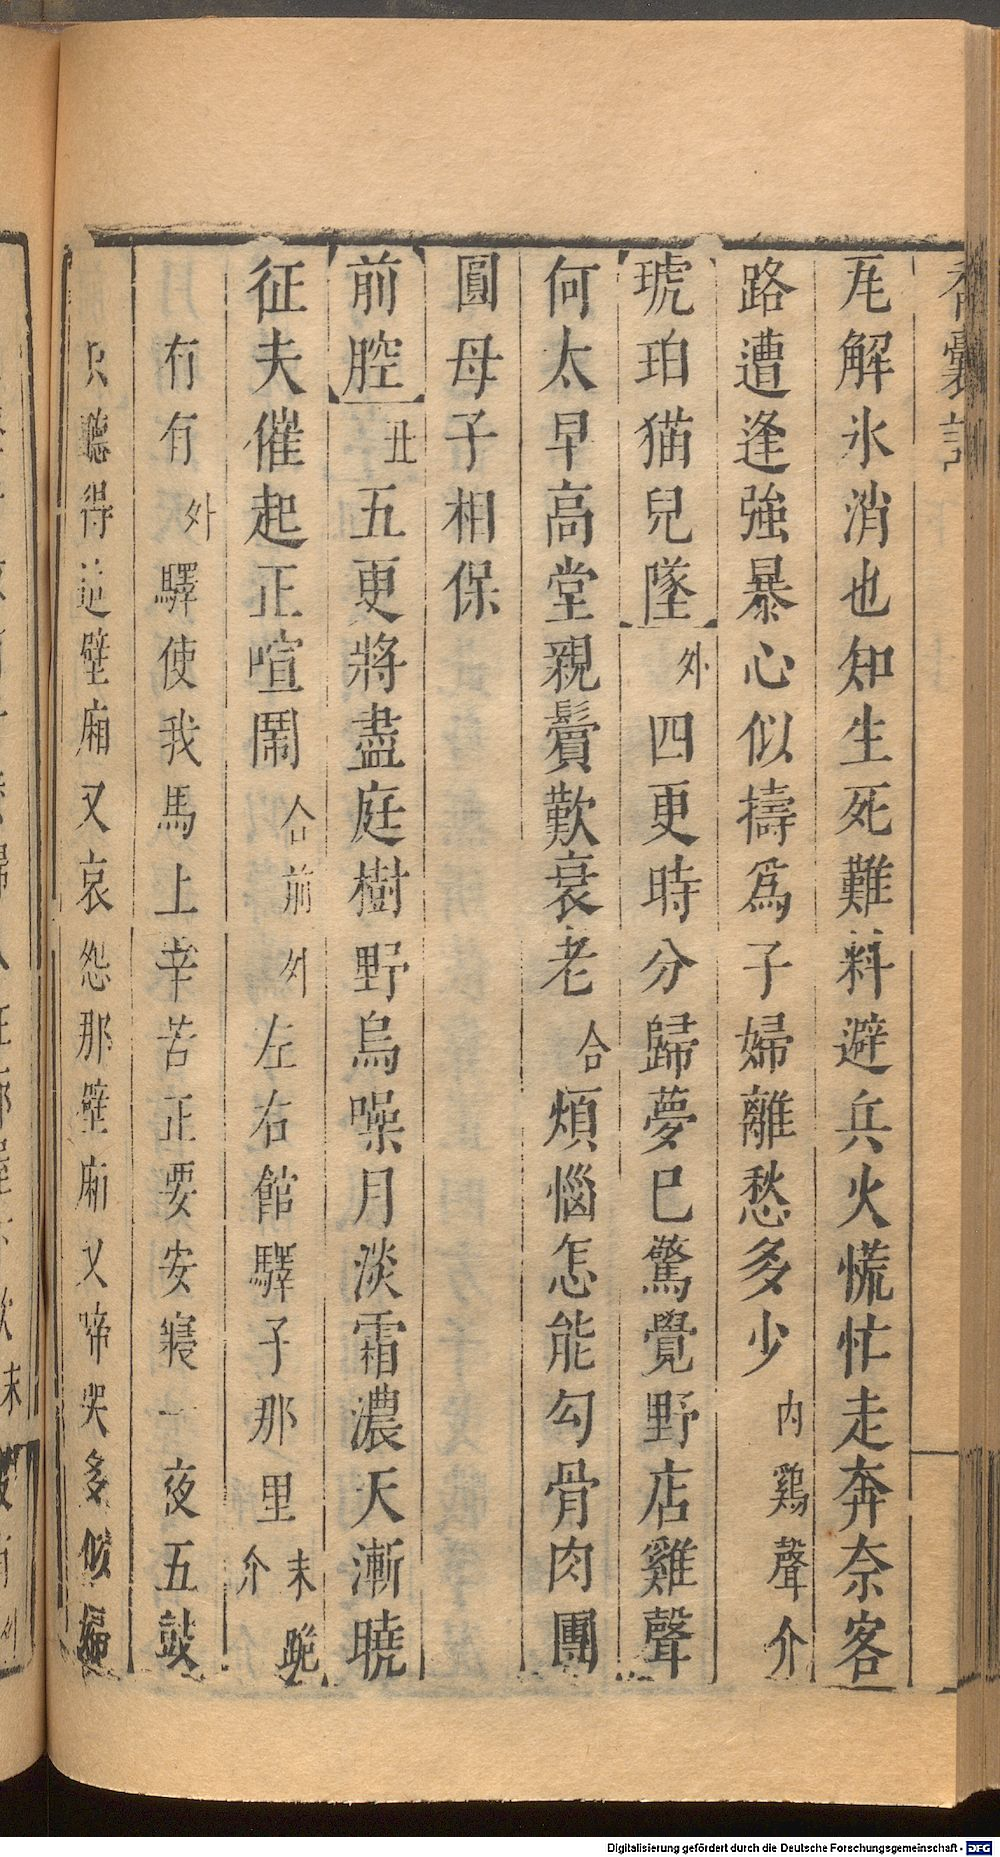 香囊記
瓦解氷消也知生死難料避兵火慌忙走奔奈客
路遭逢強暴心似擣爲子婦離愁多少內鷄聲介
琥珀猫兒墜外四更時分歸夢巳驚覺野店雞聲
何太早高堂親鬢歎衰老合煩惱怎能勾骨肉團
圓母子相保
前腔丑五更將盡庭樹野烏噪月淡霜濃天漸曉
征夫催起正喧鬧合前外左右館驛子那里末跪介
月有有外驛使我馬上辛苦正要安寢一夜五鼓
只聽得這壁廂又哀怨那壁廂又啼哭多似
Digitalisierung gefördert durch die Deutsche Forschungsgemeinschaft - DFG